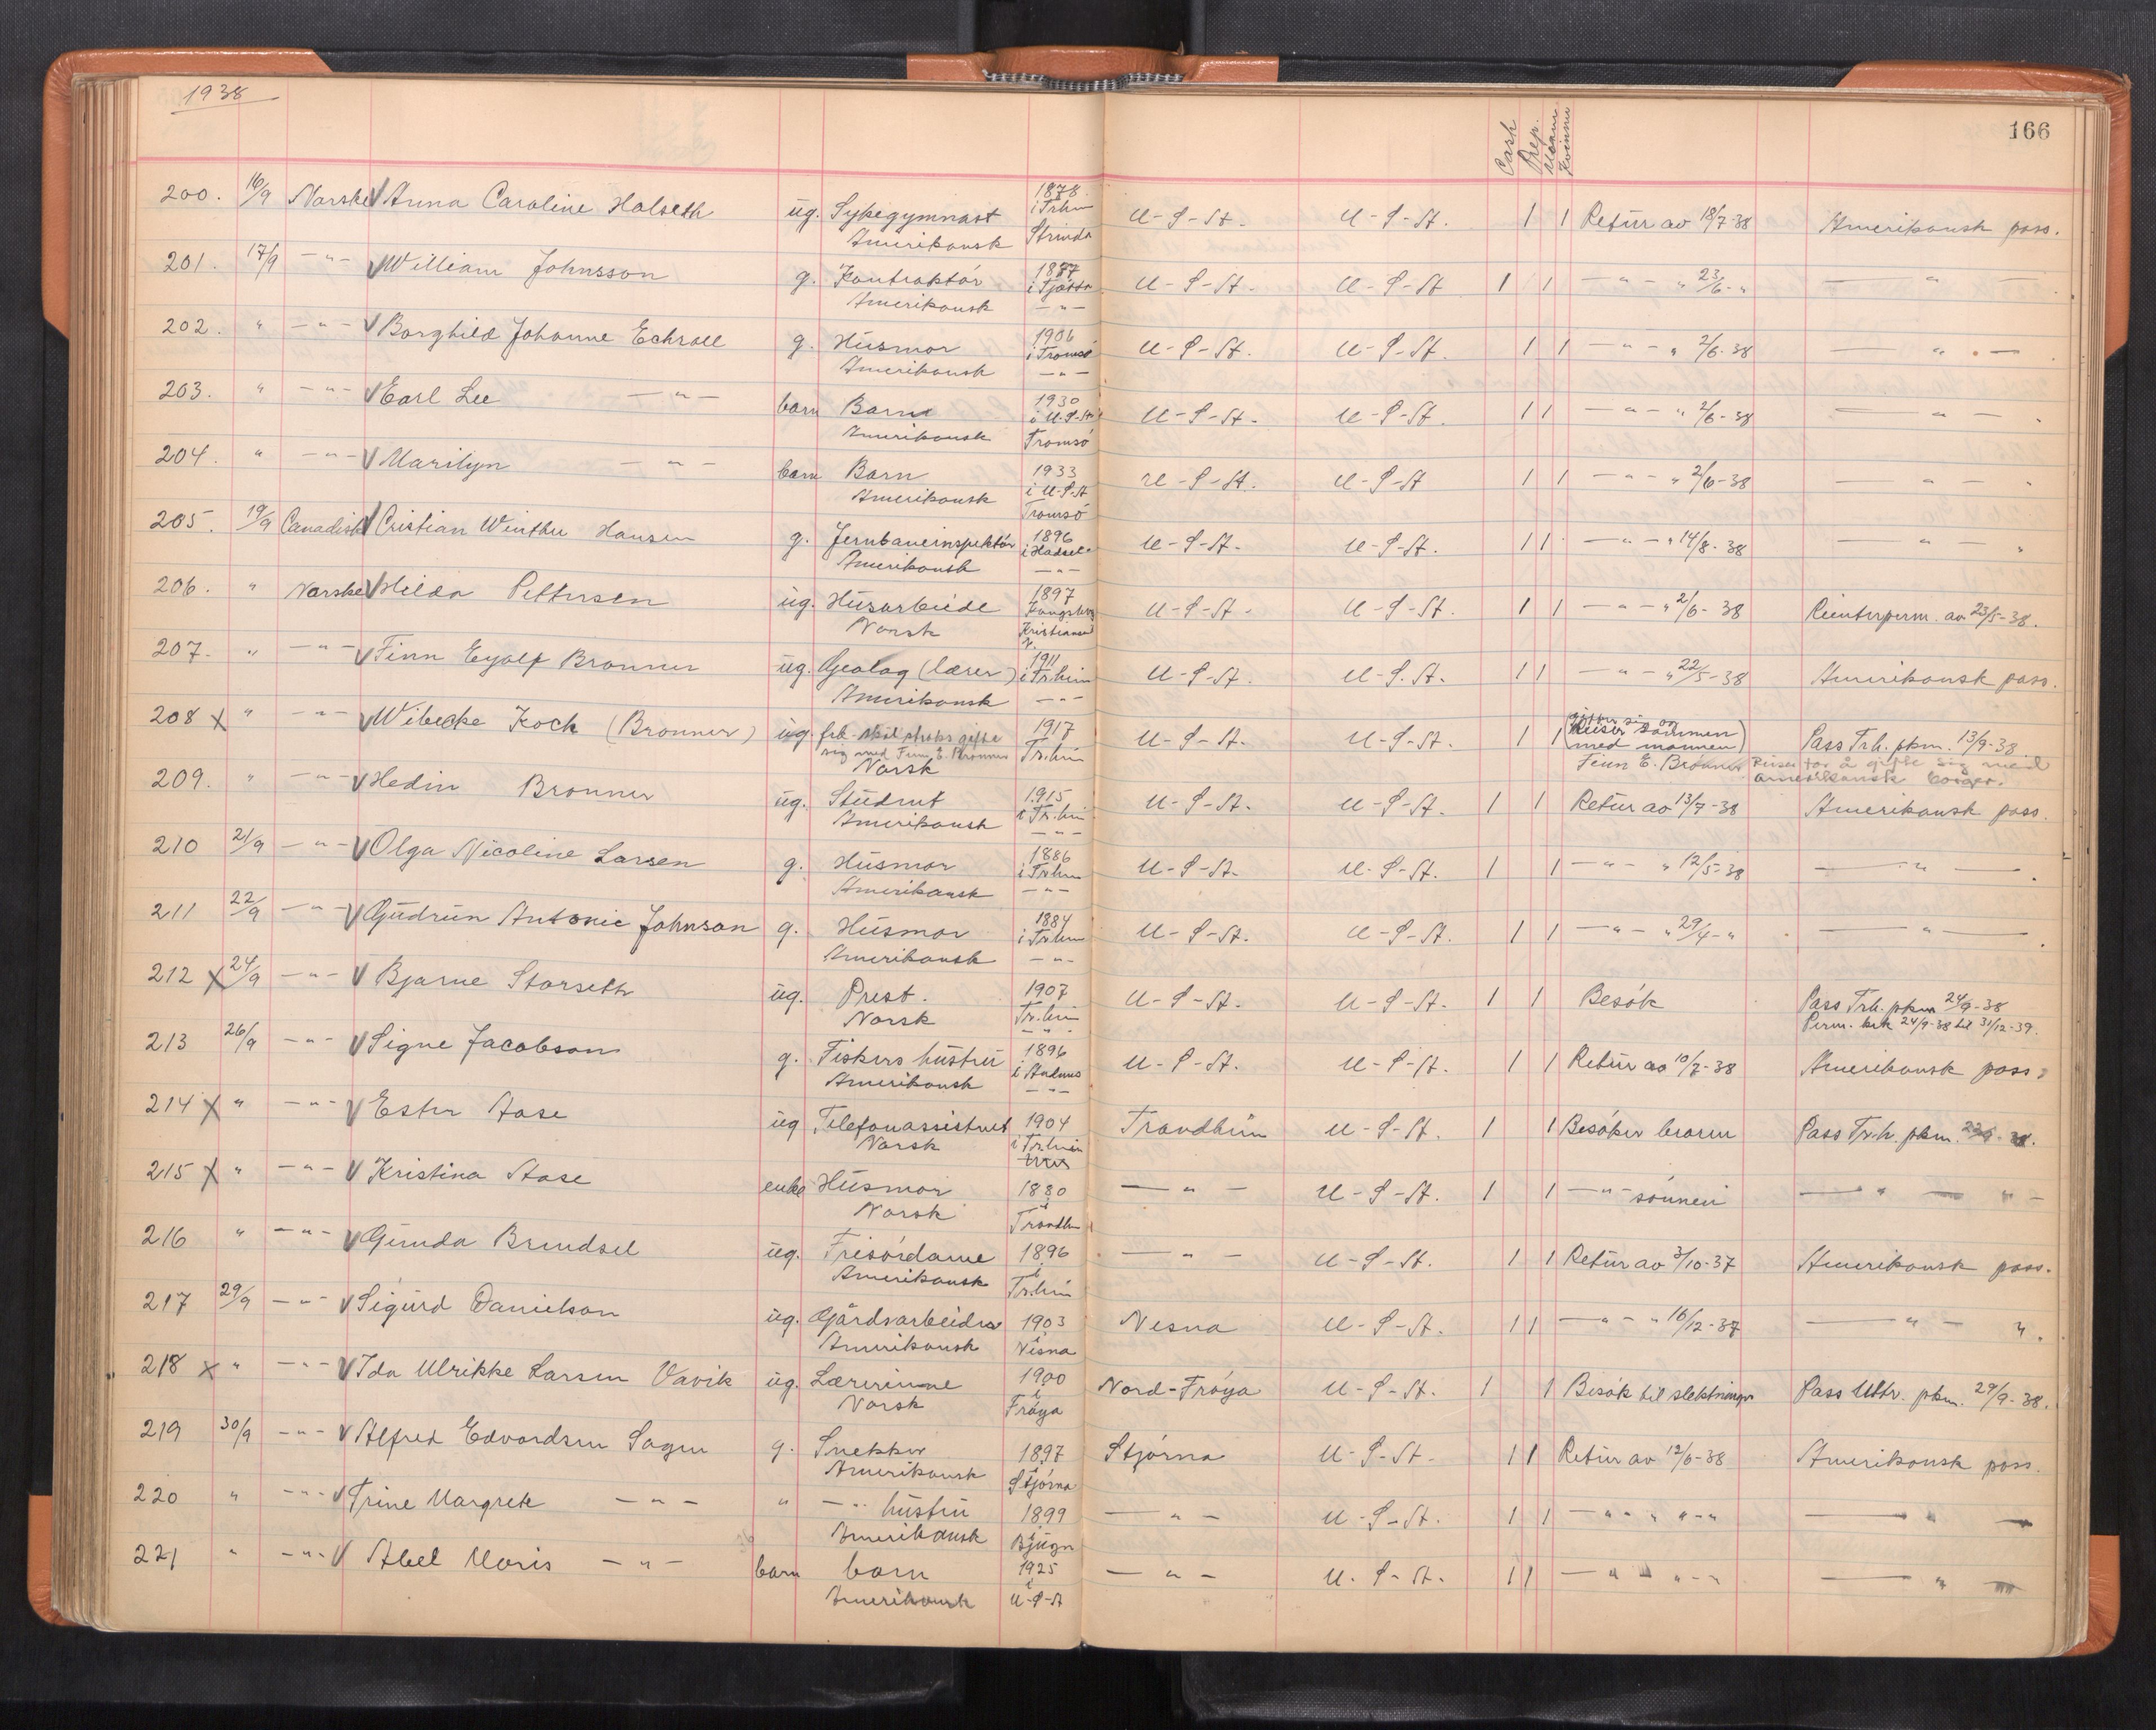 1938
166
Cash Prep. Menn Kvinner
200. 16/9 Norske V Anna Caroline Halseth ug. Sykegymnast 1878 i Tr.hm U-S-St. U-S-St. 1 1 Retur av 18/7-38 Amerikansk pass.
Amerikansk Strinda
201. 17/9 -"- V William Johnsson g. Kontraktör 1877 i Tjøtta U-S-St. U-S-St 1 1 -"- " 23/6-" -"-
Amerikansk -"-
202. " -"- V Borghild Johanne Eckroll g. Husmor 1906 i Tromsö U-S-St. U-S-St. 1 1 -"- " 2/6-38 -"-
Amerikansk -"-
203. " -"- V Earl Lee -"- barn Barn 1930 i U-S-St U-S-St. U-S-St. 1 1 -"- " 2/6-38 -"-
Amerikansk Tromsö
204. " -"- V Marilyn -"- barn Barn 1933 i U-S-St U-S-St. U-S-St 1 1 -"- " 2/6-38 -"-
Amerikansk Tromsö
205. 19/9 Canadisk V Cristian Winther Hansen g. Jernbaneinspektör 1896 i Hadsel U-S-St. U-S-St. 1 1 -"- " 14/8-38 -"- "
Amerikansk -"-
206. " Norske V Hilda Pettersen ug. Husarbeide 1897 Kongsberg U-S-St. U-S-St. 1 1 -"- " 2/6-38 Reenterperm. av 23/5-38.
Norsk Kristiansund N.
207. " -"- V Finn Eyolf Bronner ug. Geolog (lærer) 1911 i Tr.heim U-S-St. U-S-St. 1 1 -"- " 22/5-38 Amerikansk pass.
Amerikansk -"-
208 X " -"- V Wibecke Koch (Bronner) ug. frk. skal straks gifte 1917 U-S-St. U-S-St. 1 1 (gifter sig og Reiser sammen med mannen) Pass Trh. pkm. 13/9-38
sig med Finn E. Bronner Tr.heim Finn E. Bronner Reiser for å gifte sig med
Norsk amerikansk borger.
209. " -"- V Hedin Bronner ug. Student 1915 i Tr.heim U-S-St. U-S-St. 1 1 Retur av 13/7-38 Amerikansk pass.
Amerikansk -"-
210 21/9 -"- V Olga Nicoline Larsen g. Husmor 1886 i Tr.hm U-S-St. U-S-St. 1 1 -"- " 12/5-38 -"-
Amerikansk -"-
211 22/9 -"- V Gudrun Antonie Johnson g. Husmor 1884 i Tr.hm U-S-St. U-S-St. 1 1 -"- " 29/4-" -"-
Amerikansk -"-
212 X 24/9 -"- V Bjarne Storseth ug. Prest. 1907 Tr.heim U-S-St. U-S-St. 1 1 Besök Pass Trh. pkm 24/9-38
Norsk -"- Perm. 24/9-38 til 31/12-39.
213 26/9 -"- V Signe Jacobson g. Fiskers hustru 1896 i Andenes U-S-St. U-S-St. 1 1 Retur av 10/7-38 Amerikansk pass
Amerikansk -"-
214 X " -"- V Ester Aase ug Telefonassistent 1904 i Tr.heim Trondheim U-S-St. 1 1 Besöker broren Pass Tr.h. pkm. 22/9-38.
Norsk
215 X " -"- V Kristina Aase enke Husmor 1880 -"- U-S-St. 1 1 -"- sönnen -"- "-
Norsk i Trondh.
216 " -"- V Gunda Brendsel ug. Frisördame 1896 -"- U-S-St. 1 1 Retur av 3/10-37 Amerikansk pass.
Amerikansk i Tr.heim
217 29/9 -"- V Sigurd Danielson ug. Gårdsarbeider 1903 Nesna U-S-St. 1 1 -"- " 16/12-37 -"- ".
Amerikansk i Nesna
218 X " -"- V Ida Ulrikke Larsen Vavik ug. Lærerinne 1900 Nord-Fröya U-S-St. 1 1 Besök til slektninger Pass Uttr. pkm. 29/9-38.
Norsk i Fröya
219 30/9 -"- V Alfred Edvardsen Sagen g. Snekker 1897 Stjörna U-S-St. 1 1 Retur av 12/6-38 Amerikansk pass.
Amerikansk i Stjörna
220 " -"- V Trine Margrete -"- " -"- hustru 1899 -"- U-S-St. 1 1 -"- " "-" -"-
Amerikansk i Bjugn
221 " -"- V Abel Moris -"- barn barn 1925 -"- U-S-St. 1 1 -"- "-" -"-
Amerikansk i U-S-St